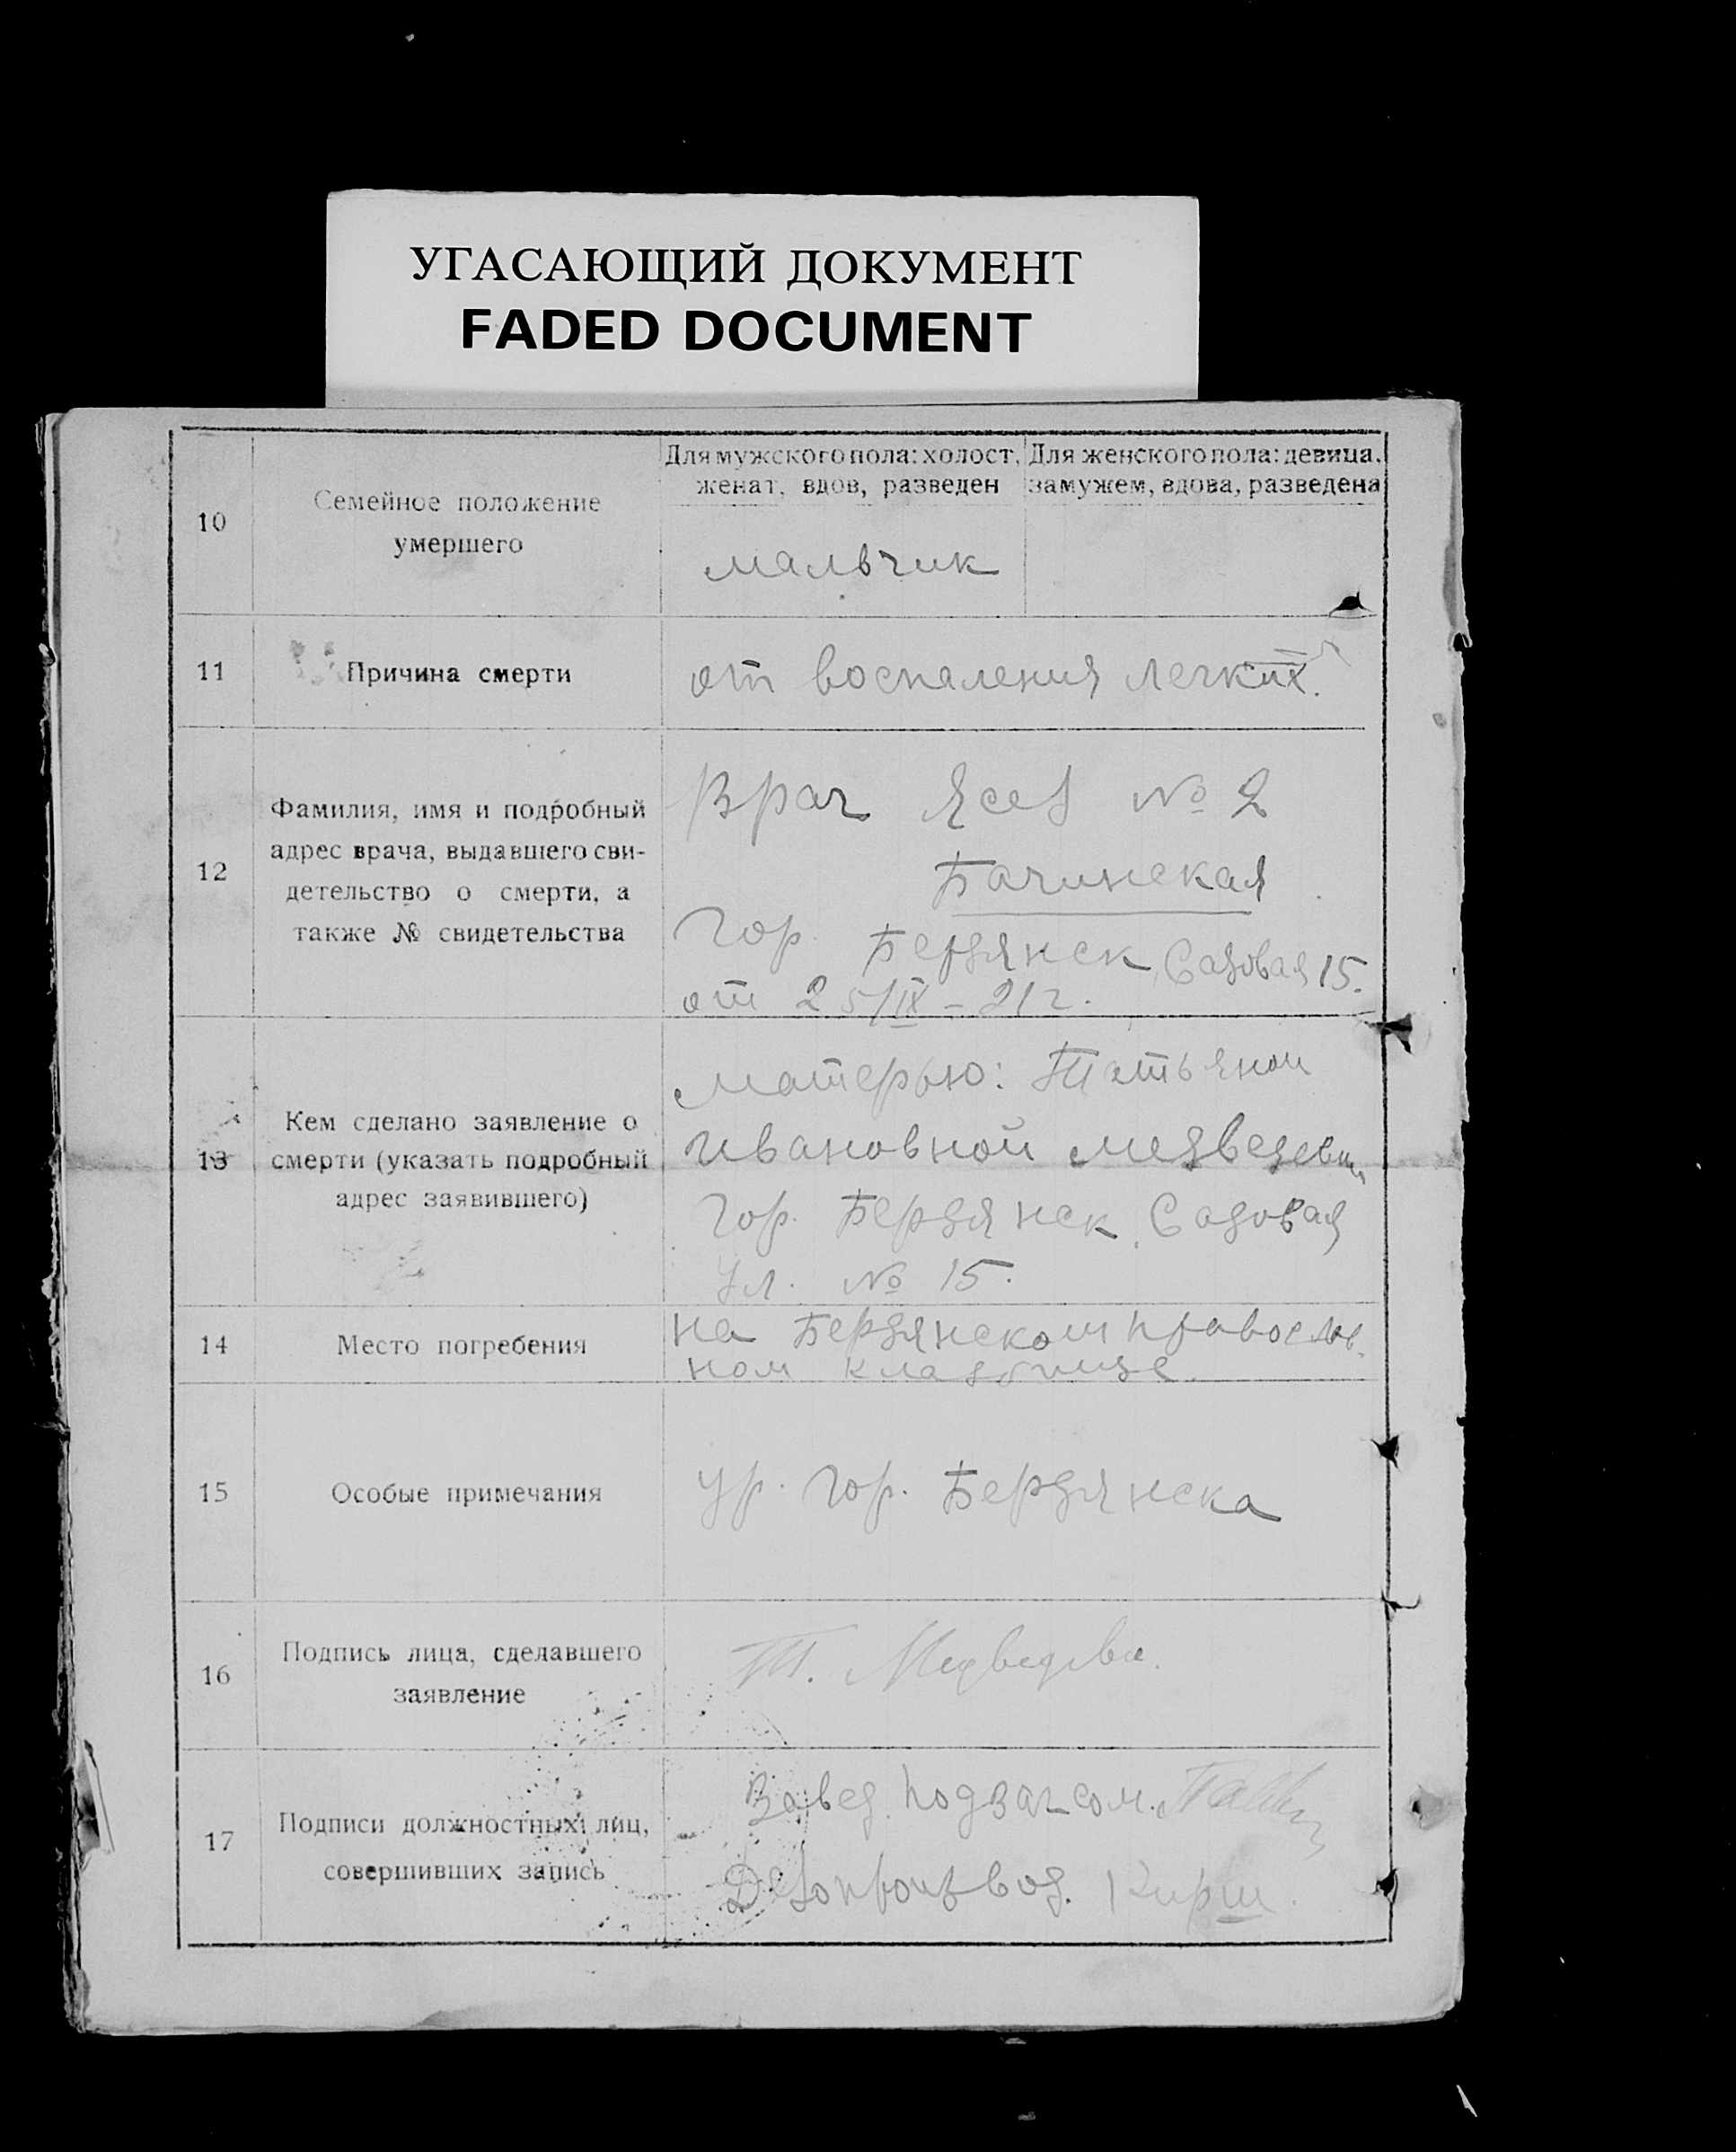 УГАСАЮЩИЙ ДОКУМЕНТ
FADED DOCUMENT
10
Семейное положение
умершего
Для мужского пола: холост,
женат, вдов, разведен
Для женского пола: девица,
замужем, вдова, разведена
мальчик
11
Причина смерти
от воспаления легких.
12
Фамилия, имя и подробный
адрес врача, выдавшего сви-
детельство о смерти, а
также № свидетельства
Врач Ясел № 2
Бачинская
Гор. Бердянск Садовая 15.
от 25/IX - 21 г.
13
Кем сделано заявление о
смерти (указать подробный
адрес заявившего)
матерью: Татьяной
Ивановной Медведевой
Гор. Бердянск, Садовая
ул. № 15.
14
Место погребения
на Бердянском православ-
ном кладбище.
15
Особые примечания
ур. гор. Бердянска
16
Подпись лица, сделавшего
заявление
Т. Медведева.
17
Подписи должностных лиц,
совершивших запись
Завед. подзагсом.
Делопроизвод. Кирш.